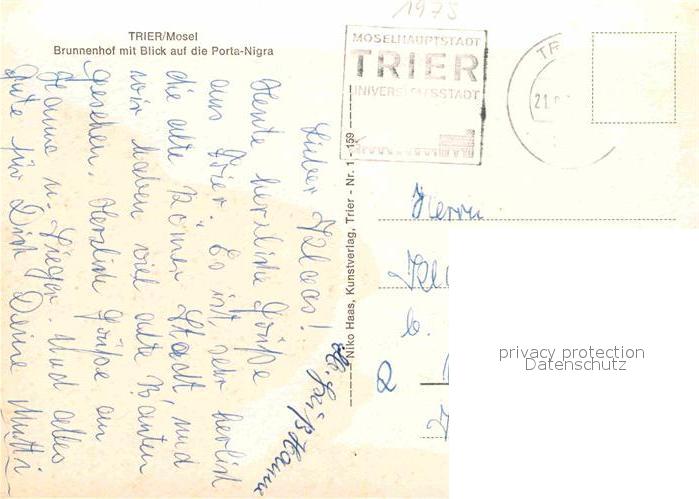 1975
TRIER/Mosel
Brunnenhof mit Blick auf die Porta-Nigra
MOSELHAUPTSTADT
TRIER
UNIVERSITÄTSSTADT
TR
21.
Lieber Klaas!
Heute herzliche Grüße
aus Trier. Es ist sehr herlich
die alte Römer Stadt, und
wir haben viel alte Bauten
gesehen. Herzliche Grüße an
Hanna u. Jürgen. Und alles
Gute für Dich Deine Mutti
Hanna
Niko Haas, Kunstverlag, Trier - Nr. 1 - 159
Herrn
Kl
6.
2
privacy protection
Datenschutz